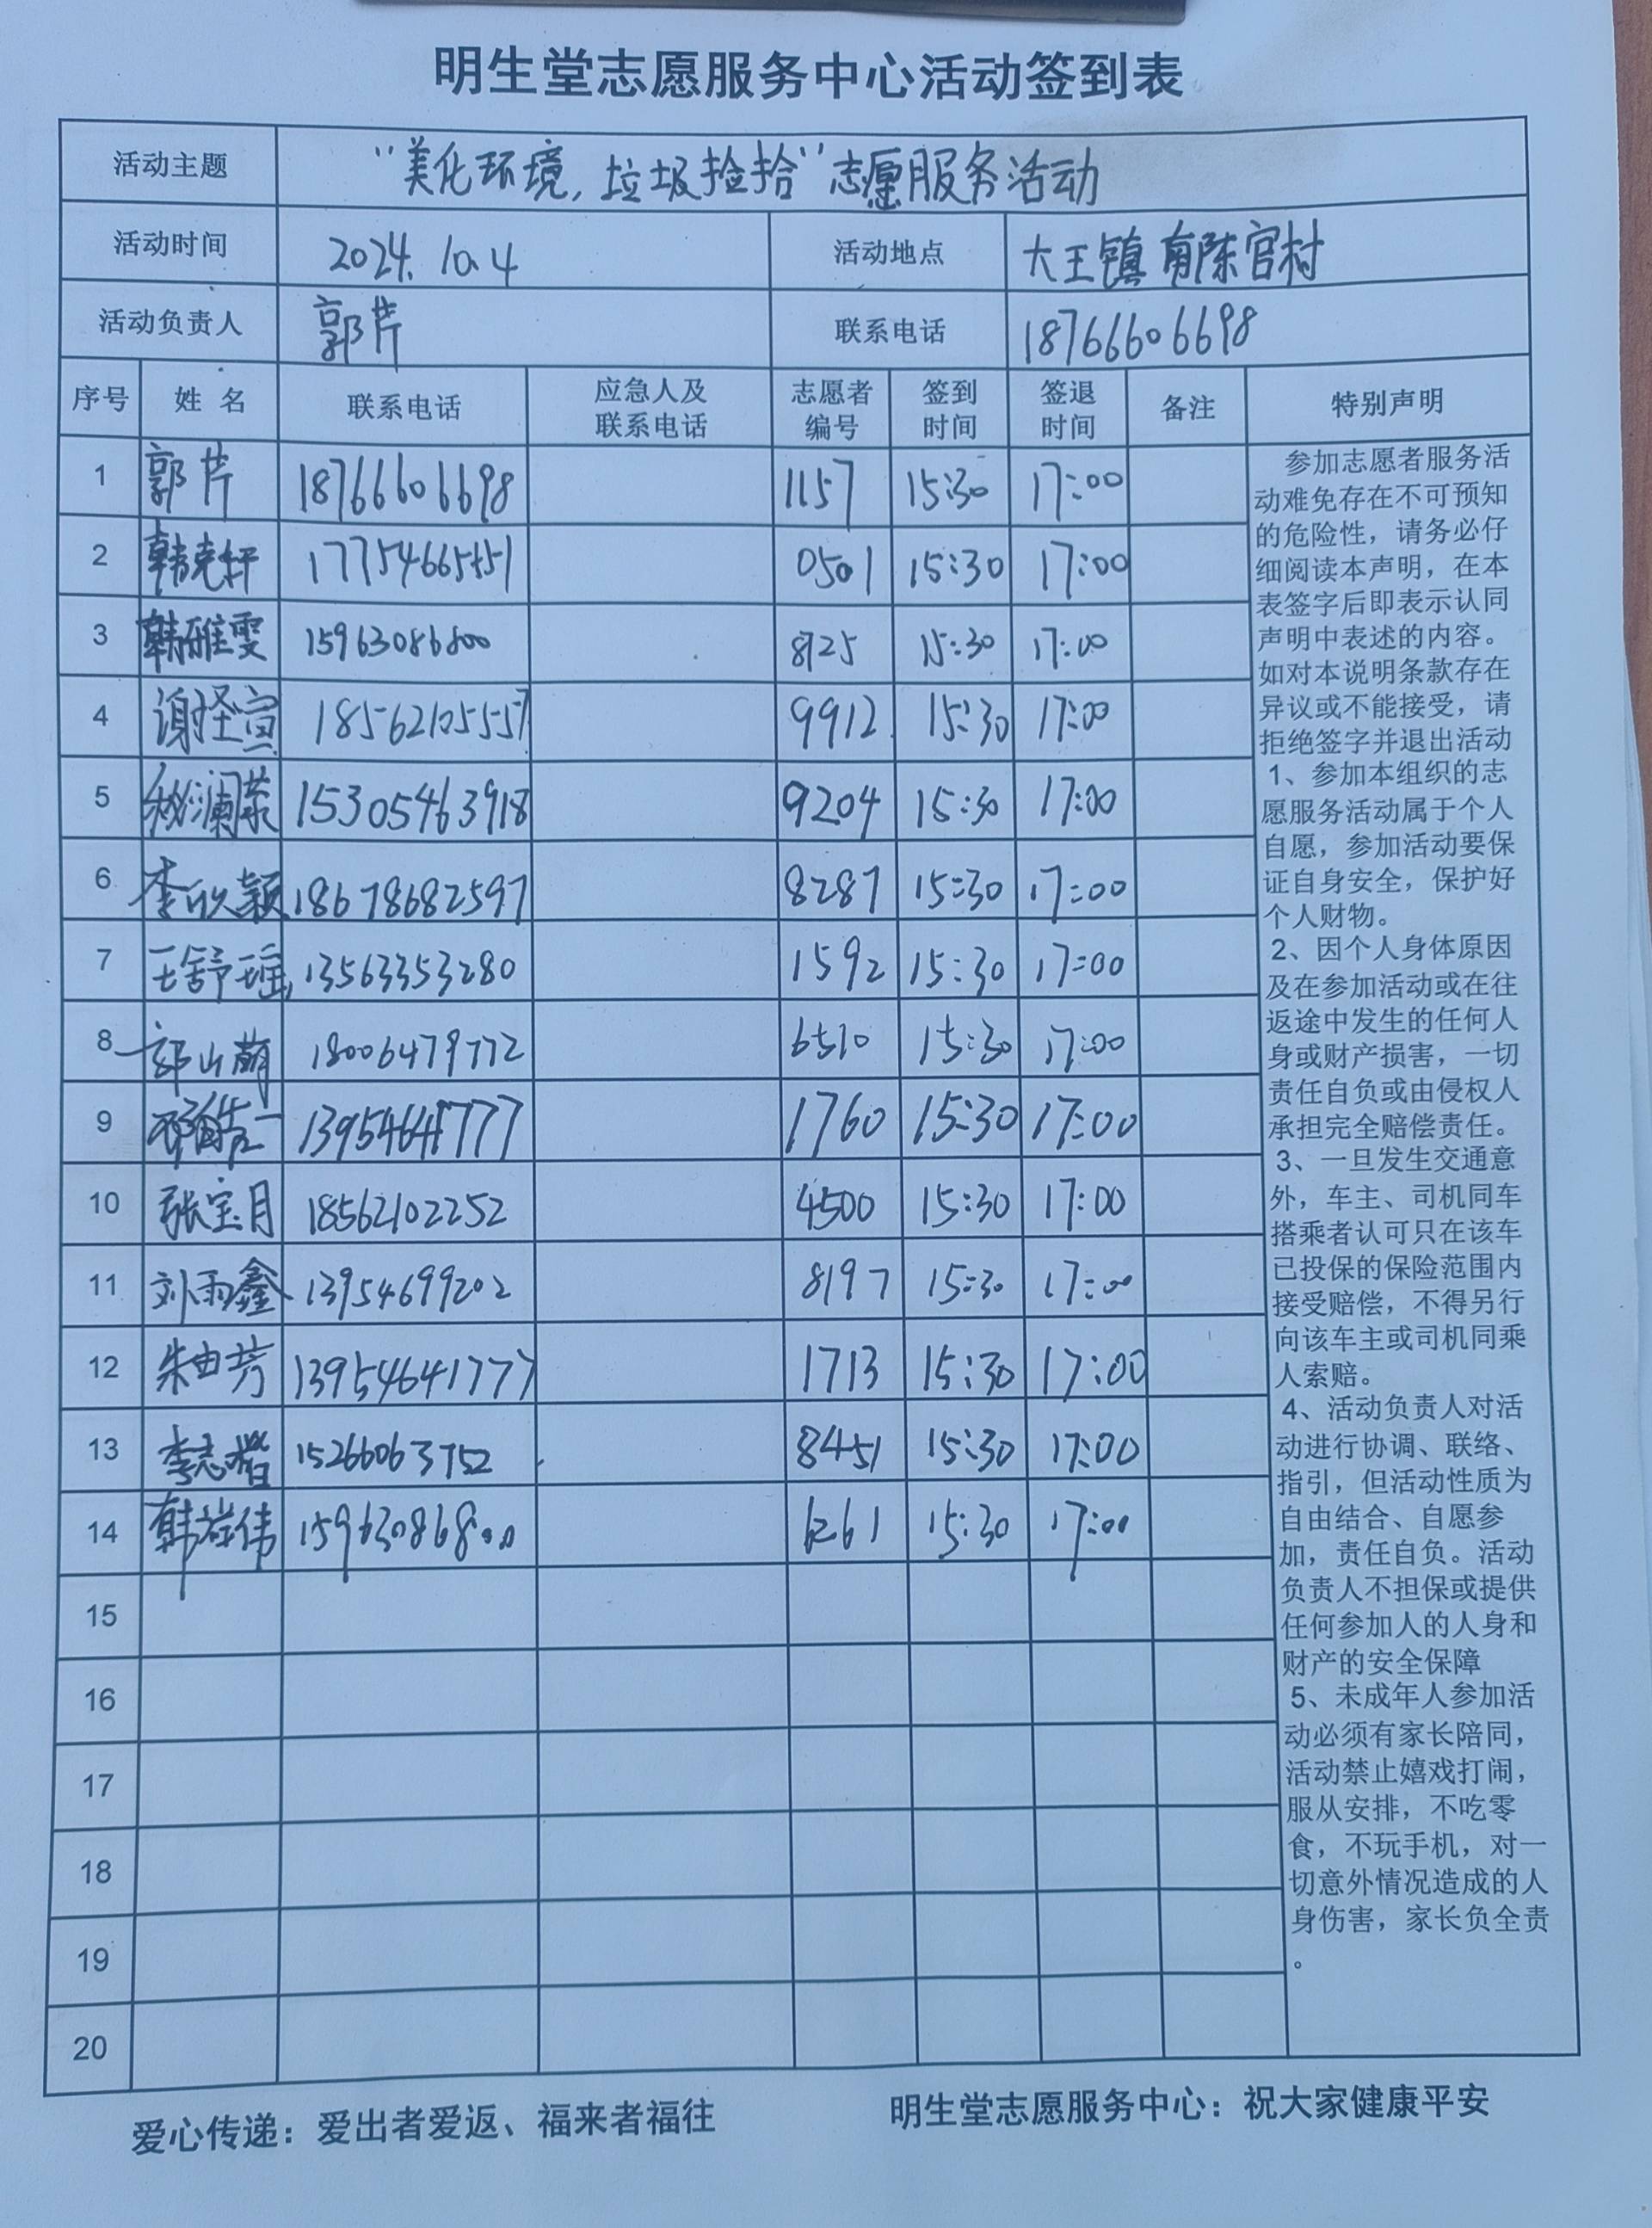 明生堂志愿服务中心活动签到表
活动主题 “美化环境,垃圾捡拾”志愿服务活动
活动时间 2024.10.4 活动地点 大王镇南陈官村
活动负责人 郭芹 联系电话 18766606698
序号 姓名 联系电话 应急人及联系电话 志愿者编号 签到时间 签退时间 备注 特别声明
1 郭芹 18766606698 1157 15:30 17:00
2 韩克轩 0501 15:30 17:00
3 韩雅雯 15963086800 8725 15:30 17:00
4 18562105557 9912 15:30 17:00
5 15305463918 9204 15:30 17:00
6 李欣颖 18678682597 8287 15:30 17:00
7 王舒瑶 13563353280 1592 15:30 17:00
8 郭山萌 18006479772 6510 15:30 17:00
9 13954641777 1760 15:30 17:00
10 张宝月 18562102252 4500 15:30 17:00
11 刘雨鑫 13954699202 8197 15:30 17:00
12 朱曲芳 13954641777 1713 15:30 17:00
13 李志楷 15266063752 8451 15:30 17:00
14 韩祥伟 15963086800 6261 15:30 17:00
15
16
17
18
19
20
参加志愿者服务活
动难免存在不可预知
的危险性，请务必仔
细阅读本声明，在本
表签字后即表示认同
声明中表述的内容。
如对本说明条款存在
异议或不能接受，请
拒绝签字并退出活动
1、参加本组织的志
愿服务活动属于个人
自愿，参加活动要保
证自身安全，保护好
个人财物。
2、因个人身体原因
及在参加活动或在往
返途中发生的任何人
身或财产损害，一切
责任自负或由侵权人
承担完全赔偿责任。
3、一旦发生交通意
外，车主、司机同车
搭乘者认可只在该车
已投保的保险范围内
接受赔偿，不得另行
向该车主或司机同乘
人索赔。
4、活动负责人对活
动进行协调、联络、
指引，但活动性质为
自由结合、自愿参
加，责任自负。活动
负责人不担保或提供
任何参加人的人身和
财产的安全保障
5、未成年人参加活
动必须有家长陪同，
活动禁止嬉戏打闹，
服从安排，不吃零
食，不玩手机，对一
切意外情况造成的人
身伤害，家长负全责
。
爱心传递：爱出者爱返、福来者福往 明生堂志愿服务中心：祝大家健康平安